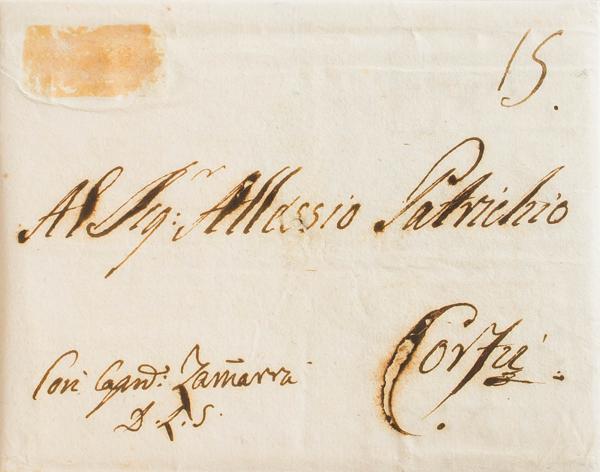 15.
Al Sig:r Allessio Patrichio
Corfù.
Con Cap.nd: Zam̃arra
D. L. S.